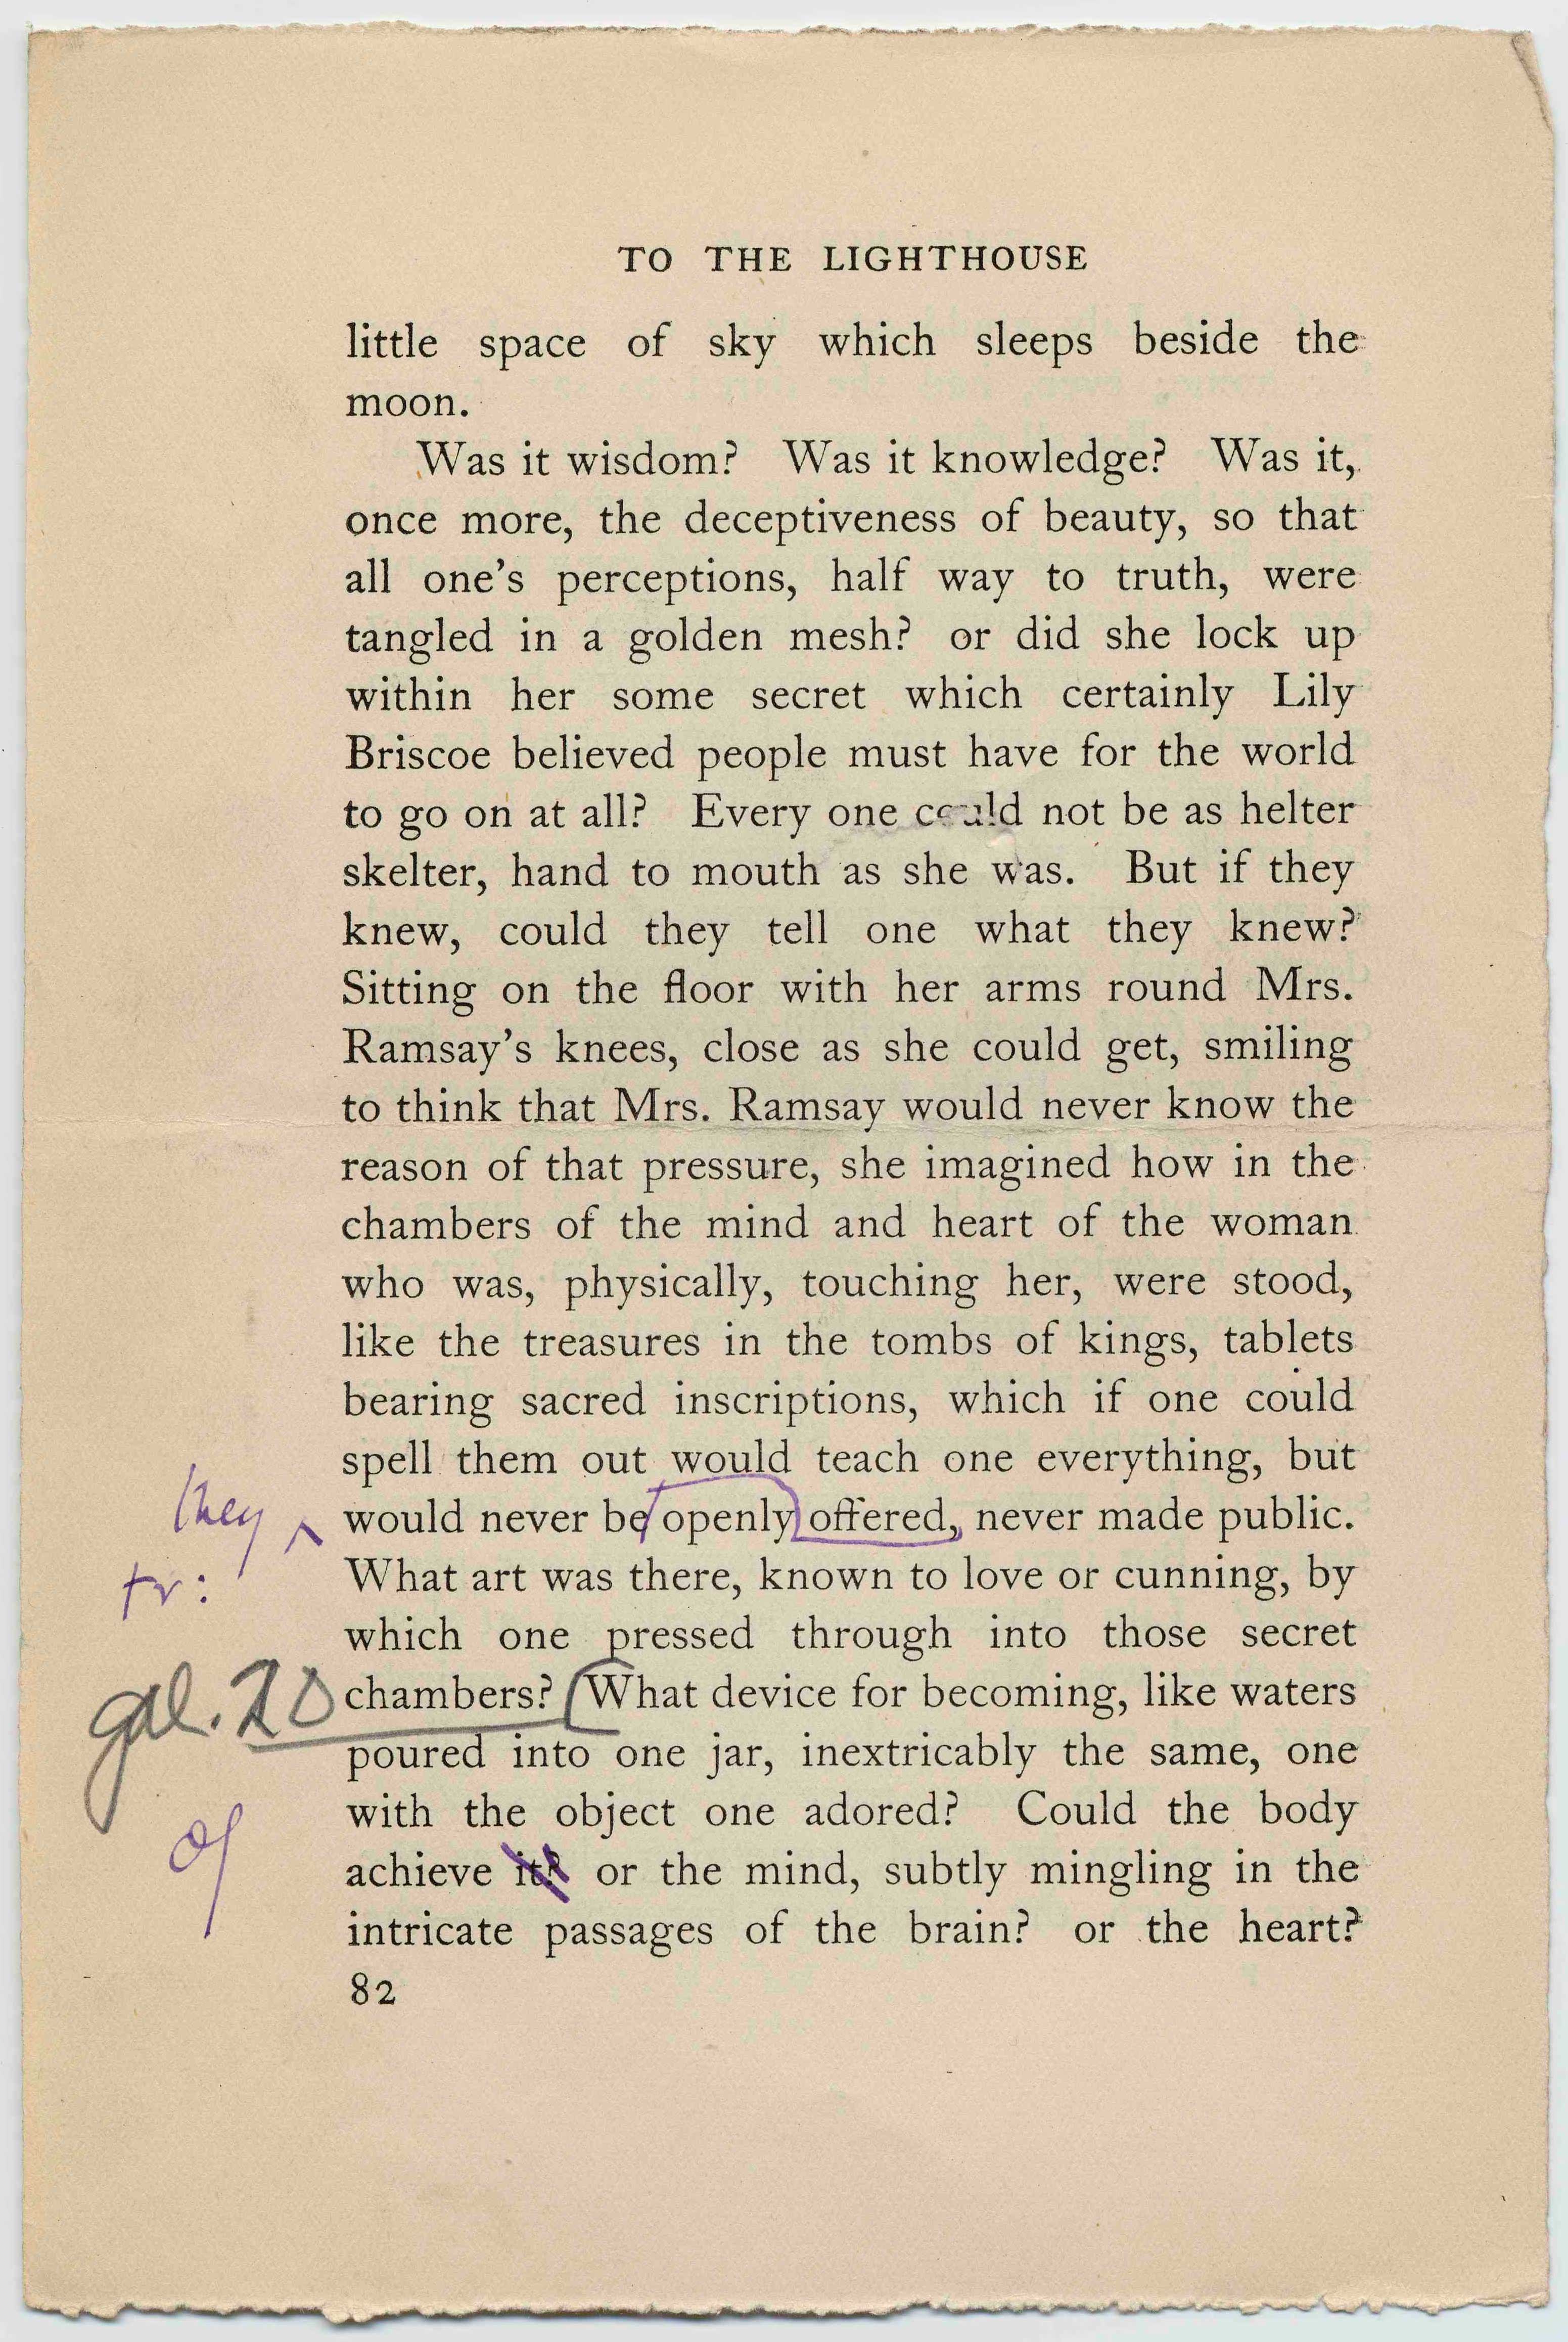 TO THE LIGHTHOUSE
little space of sky which sleeps beside the
moon.
Was it wisdom? Was it knowledge? Was it,
once more, the deceptiveness of beauty, so that
all one's perceptions, half way to truth, were
tangled in a golden mesh? or did she lock up
within her some secret which certainly Lily
Briscoe believed people must have for the world
to go on at all? Every one could not be as helter
skelter, hand to mouth as she was. But if they
knew, could they tell one what they knew?
Sitting on the floor with her arms round Mrs.
Ramsay's knees, close as she could get, smiling
to think that Mrs. Ramsay would never know the
reason of that pressure, she imagined how in the
chambers of the mind and heart of the woman
who was, physically, touching her, were stood,
like the treasures in the tombs of kings, tablets
bearing sacred inscriptions, which if one could
spell them out would teach one everything, but
they
would never be openly offered, never made public.
tr:
What art was there, known to love or cunning, by
which one pressed through into those secret
gal. 20
chambers? What device for becoming, like waters
poured into one jar, inextricably the same, one
with the object one adored? Could the body
achieve it? or the mind, subtly mingling in the
intricate passages of the brain? or the heart?
82